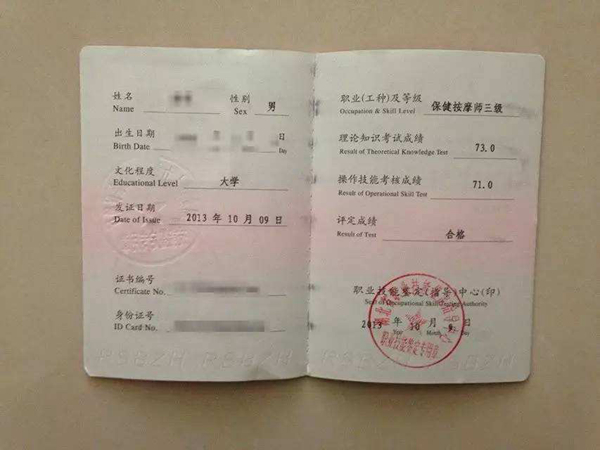 姓名 性别 男
Name Sex
出生日期 日
Birth Date Day
文化程度 大学
Educational Level
发证日期 2013 年 10 月 09 日
Date of Issue
证书编号
Certificate No.
身份证号
ID Card No.
职业(工种)及等级 保健按摩师三级
Occupation & Skill Level
理论知识考试成绩 73.0
Result of Theoretical Knowledge Test
操作技能考核成绩 71.0
Result of Operational Skill Test
评定成绩 合格
Result of Test
职业技能鉴定(指导)中心(印)
Seal of Occupational Skill Testing Authority
2013 年 10 月 9 日
Year Month
职业技能鉴定专用章